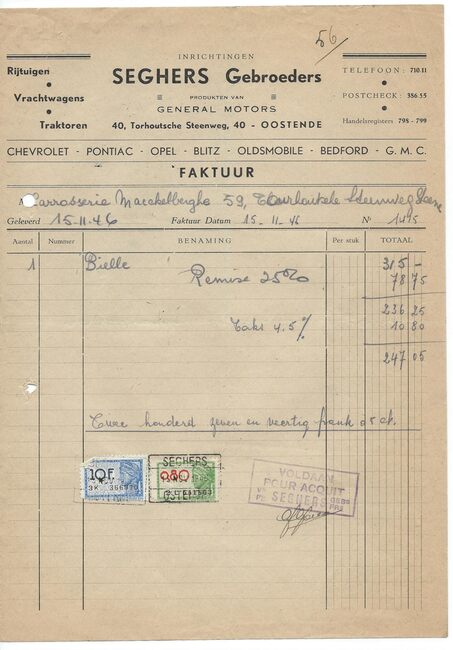 56
INRICHTINGEN
SEGHERS Gebroeders
PRODUKTEN VAN
GENERAL MOTORS
40, Torhoutsche Steenweg, 40 - OOSTENDE
Rijtuigen
Vrachtwagens
Traktoren
TELEFOON: 710.11
POSTCHECK: 386.55
Handelsregisters 798 - 799
CHEVROLET - PONTIAC - OPEL - BLITZ - OLDSMOBILE - BEDFORD - G. M. C.
FAKTUUR
Carrosserie Maeckelberghe 59, Steenweg
Geleverd 15-11-46 Faktuur Datum 15-11-46 N° 1495
Aantal Nummer BENAMING Per stuk TOTAAL
1 Bielle 315 -
Remise 25% 78 75
236 25
Taks 4.5% 10 80
247 05
Twee honderd zeven en veertig frank 05 ck.
10F
SEGHERS
VOLDAAN
POUR ACQUIT
SEGHERS